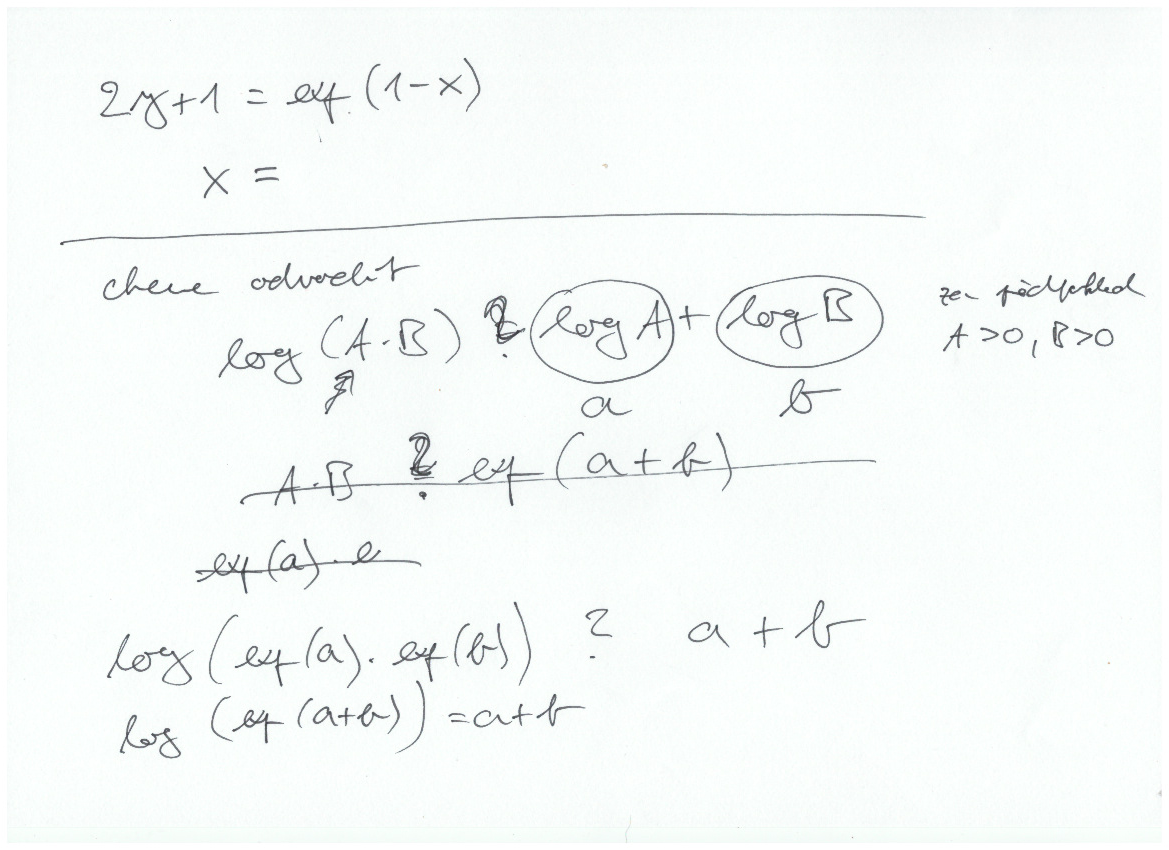 2y+1 = exp (1-x)
x =
chceme odvodit
log (A·B) ? log A + log B
za předpokladu
A>0, B>0
a b
A·B ? exp (a+b)
exp(a)· e
log (exp(a). exp(b)) ? a + b
log (exp (a+b)) = a+b